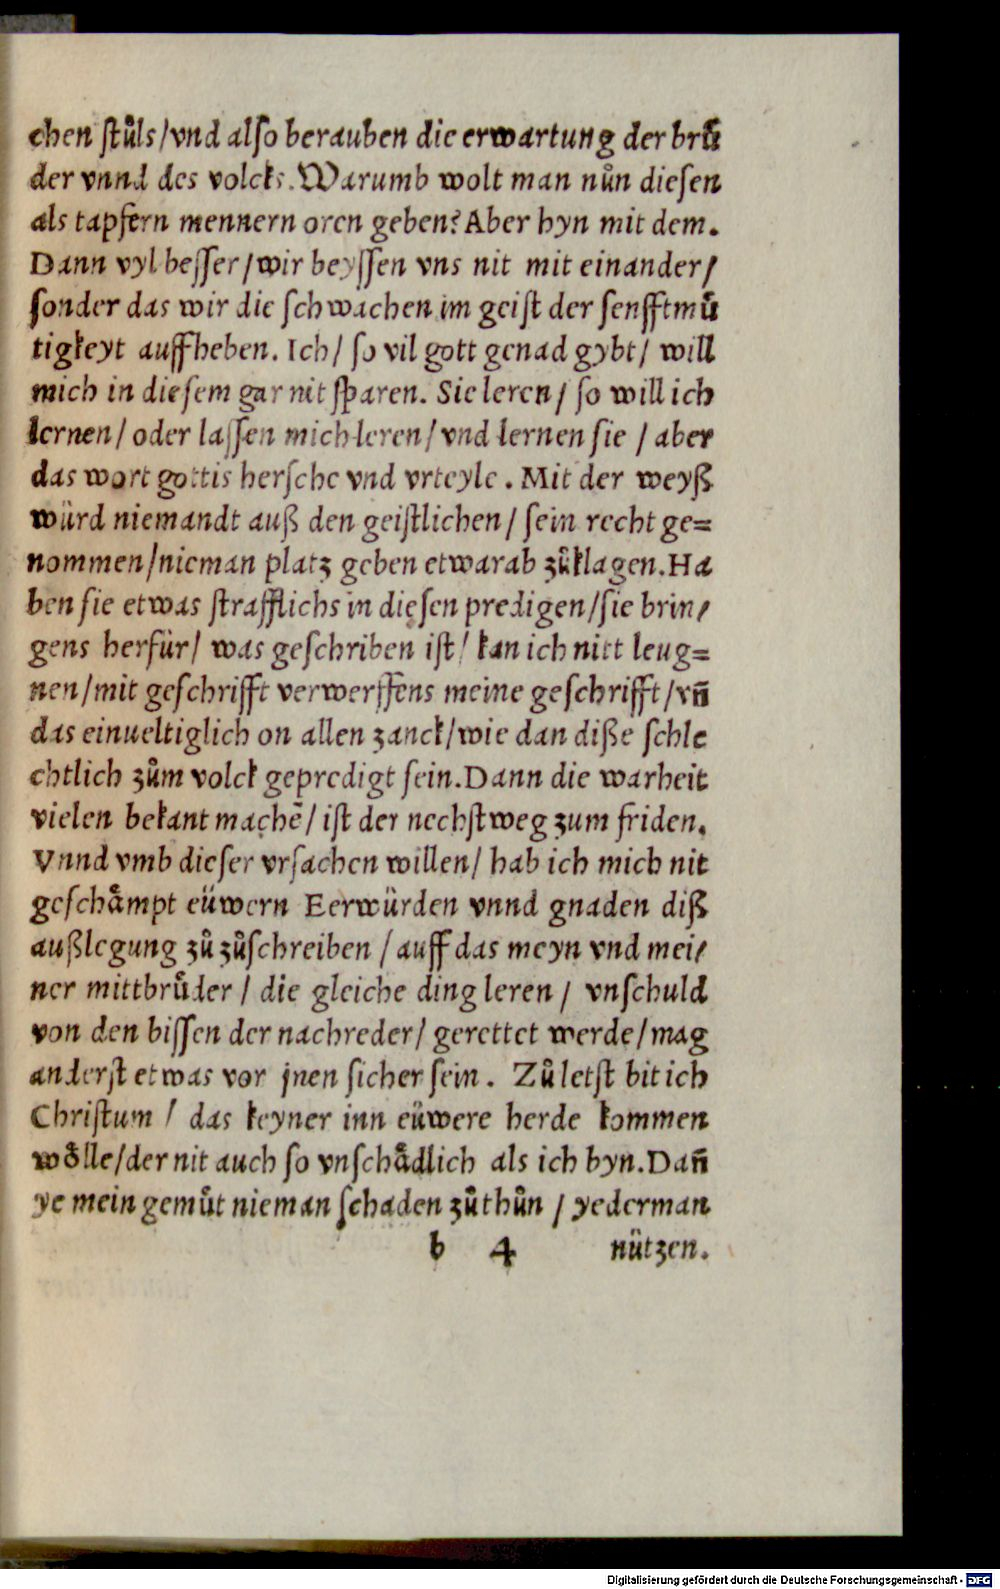 chen ſtuͦls/vnd alſo berauben die erwartung der bruͤ
der vnnd des volcks. Warumb wolt man nuͦn dieſen
als tapfern mennern oren geben? Aber hyn mit dem.
Dann vyl beſſer/wir beyſſen vns nit mit einander/
ſonder das wir die ſchwachen im geiſt der ſenfftmuͤ
tigkeyt auffheben. Ich/ ſo vil gott genad gybt/ will
mich in dieſem gar nit ſparen. Sie leren/ ſo will ich
lernen/ oder laſſen mich leren/ vnd lernen ſie / aber
das wort gottis herſche vnd vrteyle. Mit der weyß
würd niemandt auß den geiſtlichen/ ſein recht ge=
nommen/nieman platz geben etwarab zuͦklagen. Ha
ben ſie etwas ſtrafflichs in dieſen predigen/ſie brin/
gens herfür/ was geſchriben iſt/ kan ich nitt leug=
nen/mit geſchrifft verwerffens meine geſchrifft/vñ
das einueltiglich on allen zanck/wie dan diße ſchle
chtlich zuͦm volck gepredigt ſein. Dann die warheit
vielen bekant machẽ/ iſt der nechſt weg zum friden.
Vnnd vmb dieſer vrſachen willen/ hab ich mich nit
geſchaͤmpt eüwern Eerwürden vnnd gnaden diß
außlegung zuͦ zuͦſchreiben /auff das meyn vnd mei/
ner mittbruͤder / die gleiche ding leren / vnſchuld
von den biſſen der nachreder/ gerettet werde/mag
anderſt etwas vor jnen ſicher ſein. Zuͦ letſt bit ich
Chriſtum / das keyner inn eüwere herde kommen
woͤlle/der nit auch ſo vnſchaͤdlich als ich byn. Dañ
ye mein gemuͤt nieman ſchaden zuͦthuͦn / yederman
b 4 nützen.
Digitalisierung gefördert durch die Deutsche Forschungsgemeinschaft - DFG